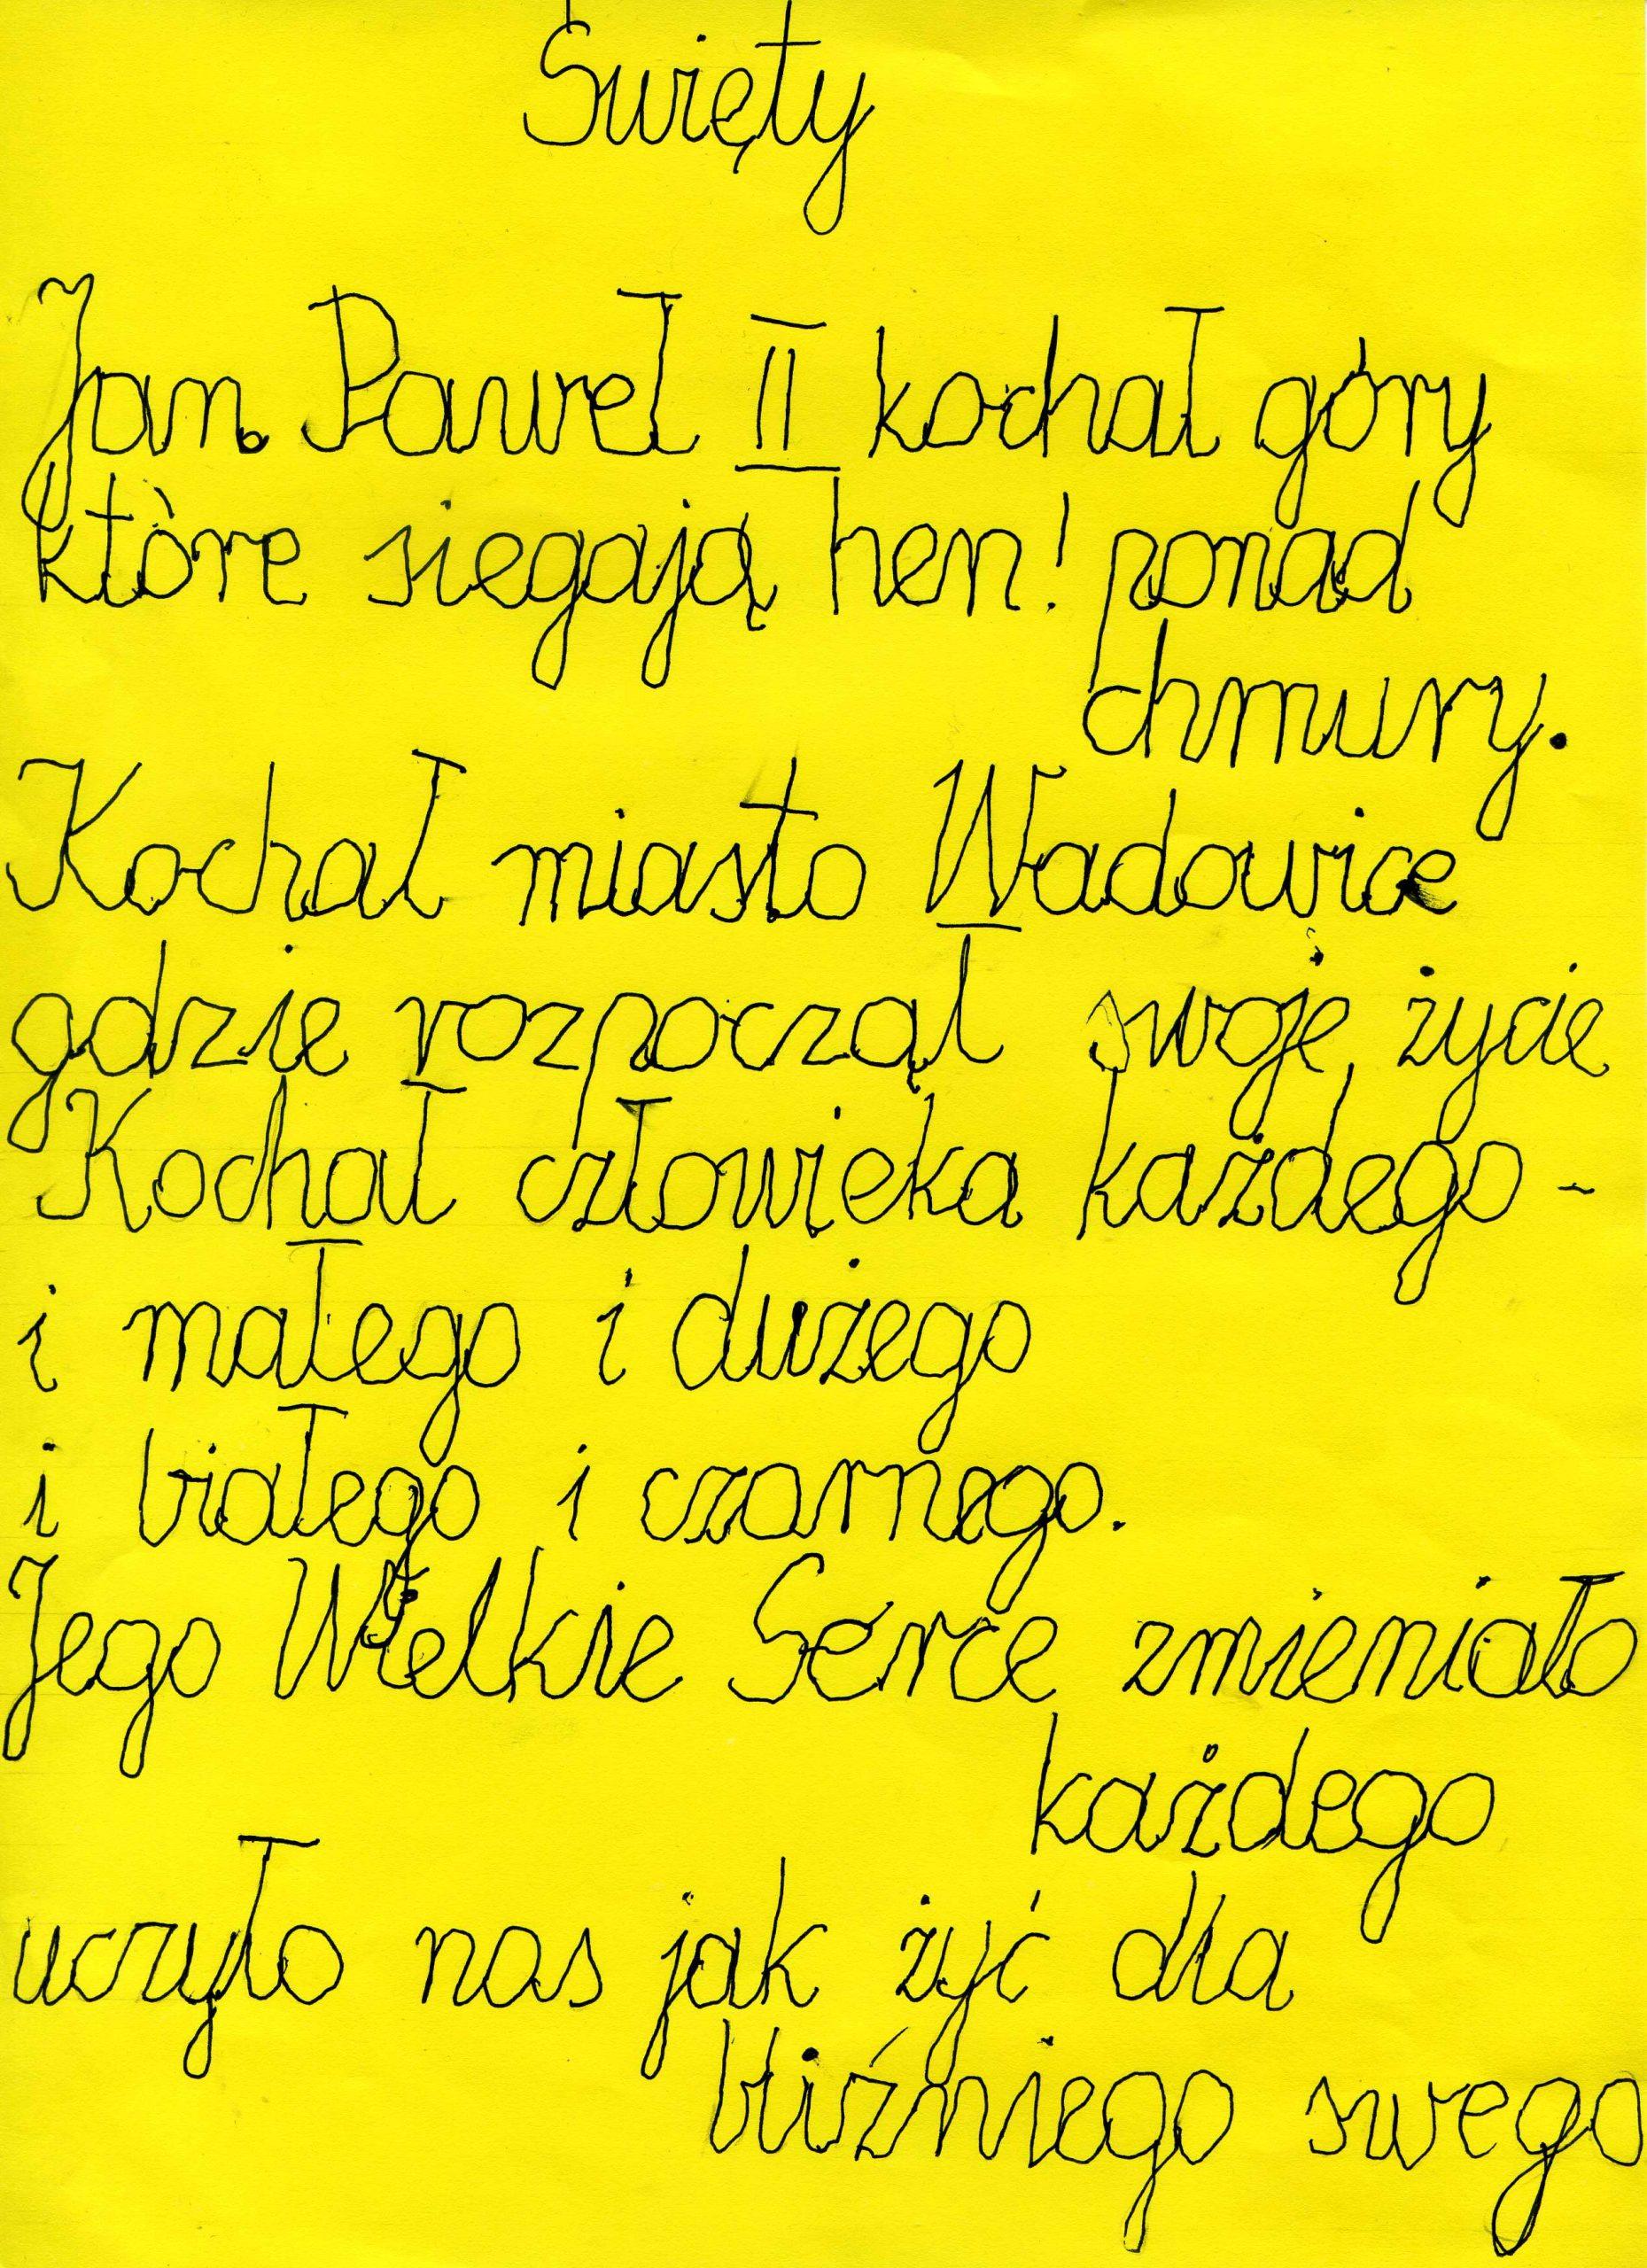 Święty
Jan. Paweł II kochał góry
które siegają hen! ponad
chmury.
Kochał miasto Wadowice
gdzie rozpoczął swoje życie
Kochał człowieka każdego -
i małego i dużego
i białego i czarnego.
Jego Wielkie Serce zmieniało
każdego
uczyło nas jak żyć dla
bliźniego swego